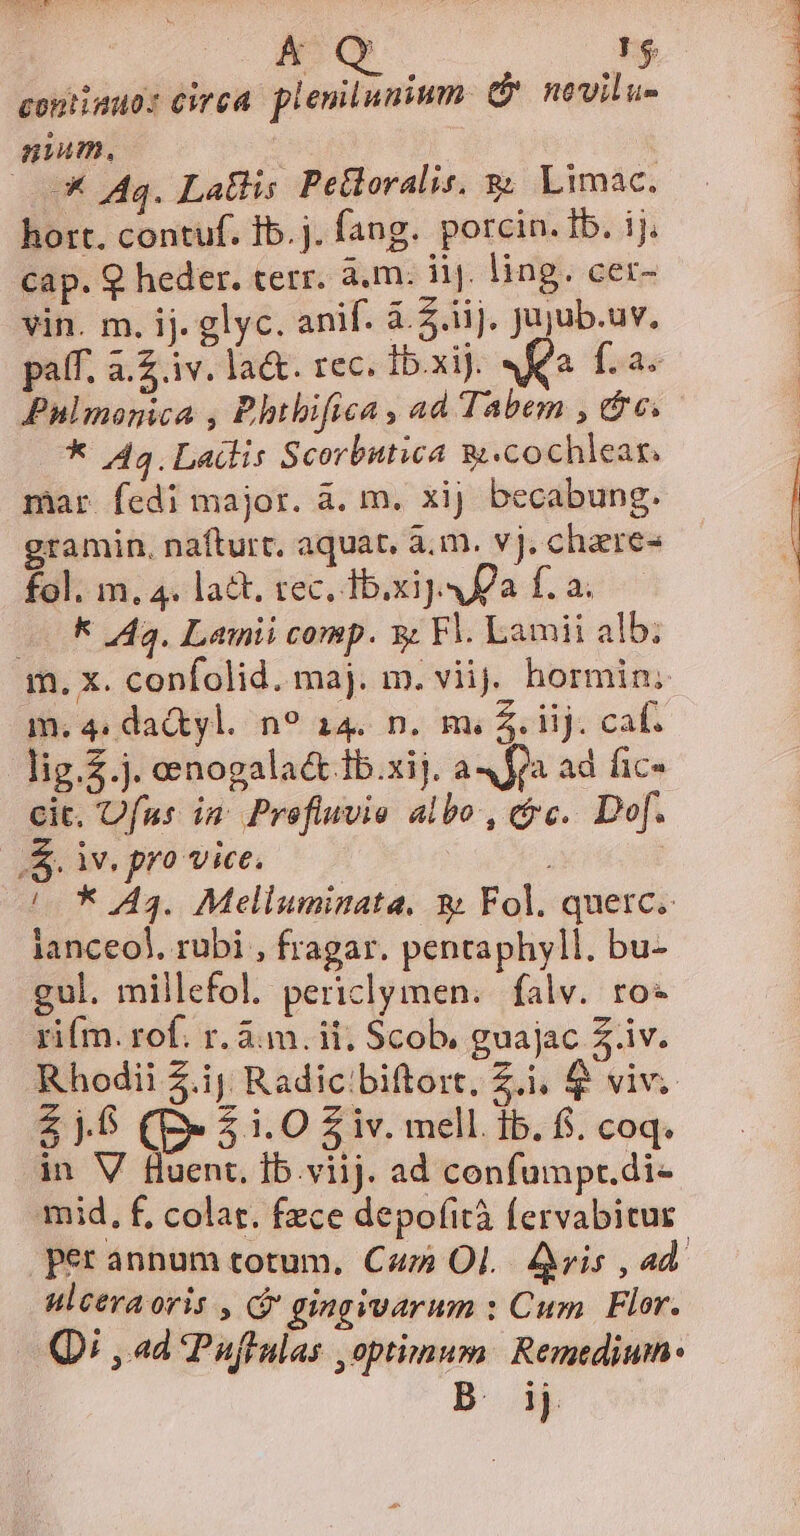 A Q 15
continuos circa plenilunium & novilu-
nium.
* Aq. Lactis Pectoralis. ℞ Limac.
hort. contuſ. ℔. j. ſang. porcin. ℔. ij.
cap. ♀ heder. terr. ā.m. iij. ling. cer-
vin. m. ij. glyc. aniſ. ā.℥.iij. jujub.uv.
paſſ. ā.℥.iv. lact. rec. ℔.xij. ſ. a.
Pulmonica , Phthiſica , ad Tabem , &c.
* Aq. Lactis Scorbutica ℞.cochlear.
mar ſedi major. ā. m. xij becabung.
gramin. naſturt. aquat. ā.m. vj. chære-
fol. m. 4. lact. rec. ℔.xij. ſ. a.
* Aq. Lamii comp. ℞ Fl. Lamii alb.
m. x. conſolid. maj. m. viij. hormin.
m. 4. dactyl. nº 14. n. m. ℥. iij. caſ.
lig.℥.j. œnogalact ℔.xij. ad ſic-
cit. Uſus in Profluvio albo , &c. Doſ.
℥. iv. pro vice.
* Aq. Melluminata. ℞ Fol. querc.
lanceol. rubi , fragar. pentaphyll. bu-
gul. millefol. periclymen. ſalv. ro-
riſm. roſ. r. ā.m. ii. Scob. guajac ℥.iv.
Rhodii ℥.ij Radic biſtort. ℥.i. viv.
℥ j.ß ℥ i. ℥ iv. mell. ℔. ß. coq.
in fluent. ℔.viij. ad conſumpt.di-
mid. f. colat. fæce depoſità ſervabitur
per annum totum. Cum Ol. , ad
ulcera oris , & gingivarum : Cum Flor.
, ad Puſtulas , optimum Remedium.
B ij